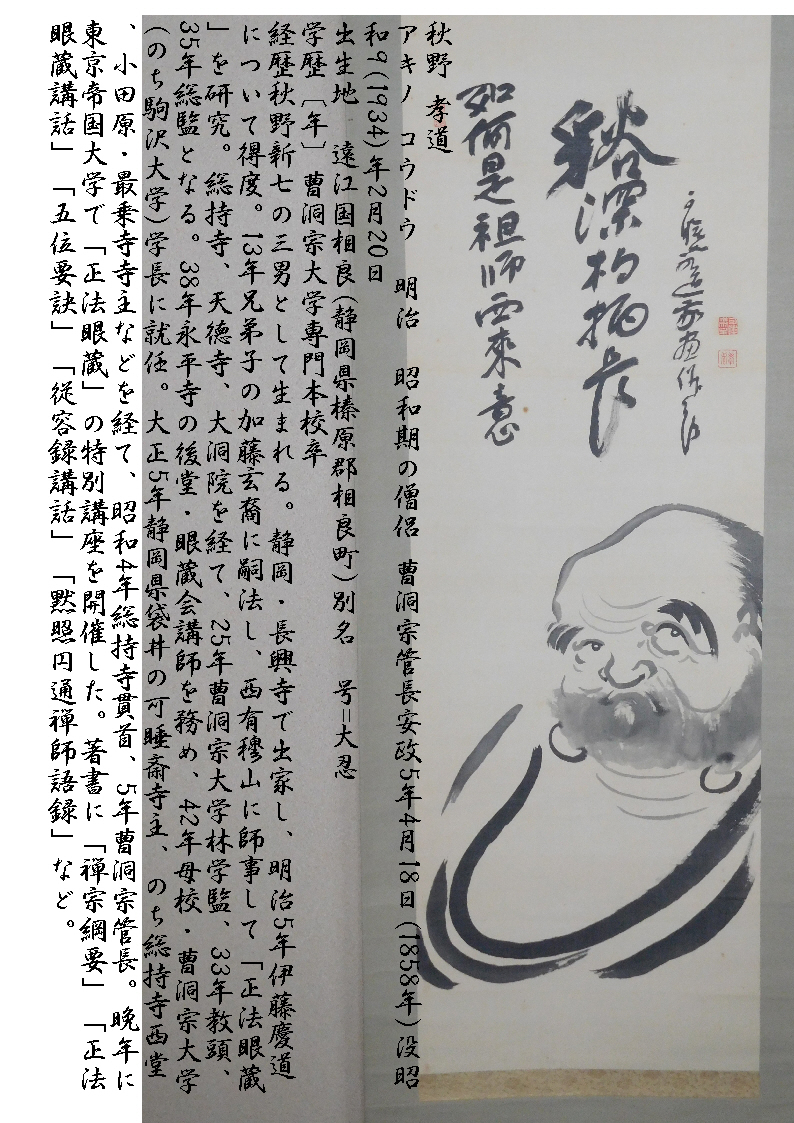 谿深杓柄長
如何是祖師西來意
秋野 孝道
アキノ コウドウ 明治 昭和期の僧侶 曹洞宗管長安政5年4月18日(1858年)没昭
和9(1934)年2月20日
出生地 遠江国相良(静岡県榛原郡相良町)別名 号=大忍
学歴〔年〕曹洞宗大学専門本校卒
経歴秋野新七の三男として生まれる。静岡・長興寺で出家し、明治5年伊藤慶道
について得度。13年兄弟子の加藤玄裔に嗣法し、西有穆山に師事して「正法眼蔵
」を研究。総持寺、天徳寺、大洞院を経て、25年曹洞宗大学林学監、33年教頭、
35年総監となる。38年永平寺の後堂・眼蔵会講師を務め、42年母校・曹洞宗大学
(のち駒沢大学)学長に就任。大正5年静岡県袋井の可睡斎寺主、のち総持寺西堂
、小田原・最乗寺寺主などを経て、昭和4年総持寺貫首、5年曹洞宗管長。晩年に
東京帝国大学で「正法眼蔵」の特別講座を開催した。著書に「禅宗綱要」「正法
眼蔵講話」「五位要訣」「従容録講話」「黙照円通禅師語録」など。